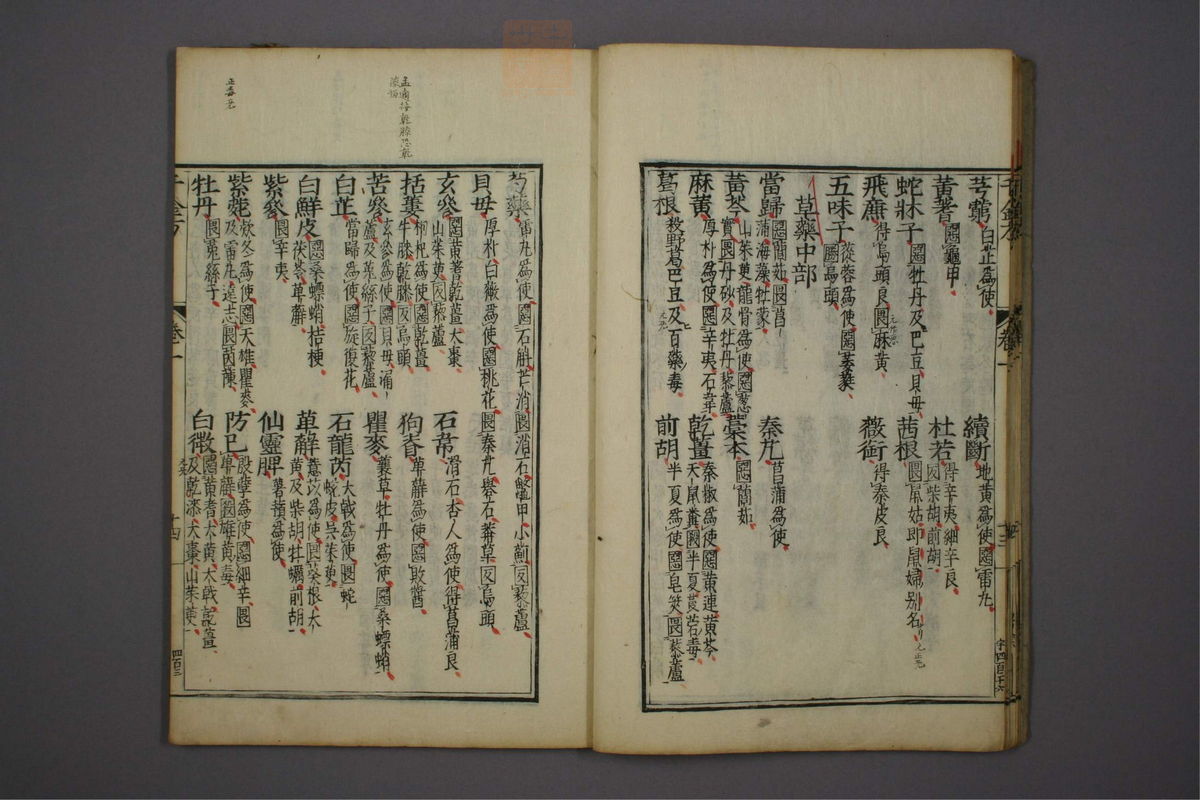 芎藭白芷爲使
續斷地黃爲使惡雷丸
黃耆惡龜甲
杜若得辛夷細辛良
惡柴胡前胡
蛇牀子惡牡丹及巴豆貝母
茜根畏鼠姑即鼠婦別名
飛廉得烏頭良惡麻黃
薇銜得秦皮良
五味子蓯蓉爲使惡葳蕤
勝烏頭
草藥中部
當歸惡䕡茹畏菖
蒲海藻牡蒙
秦艽菖蒲爲使
黃芩山茱萸龍骨爲使惡葱
實畏丹砂及牡丹藜蘆
藁本惡䕡茹
麻黃厚朴爲使惡辛夷石韋
乾薑秦椒爲使惡黃連黃芩
天鼠糞
葛根殺野葛巴豆及百藥毒
前胡半夏爲使惡皂莢畏藜蘆
芍藥雷丸爲使惡石斛芒消畏消石鱉甲小薊反藜蘆
貝母厚朴白薇爲使惡桃花畏秦艽礜石莽草反烏頭
玄參惡黃耆乾薑大棗
山茱萸反藜蘆
石韋滑石杏人爲使得菖蒲良
栝蔞枸杞爲使惡乾薑
牛膝乾膝反烏頭
狗脊萆薢爲使惡敗醬
苦參玄參爲使惡貝母漏
蘆及菟絲子反藜蘆
瞿麥蘘草牡丹爲使惡桑螵蛸
白芷當歸爲使惡旋復花
石龍芮大戟爲使畏蛇
蛻皮吳茱萸
白鮮皮惡桑螵蛸桔梗
茯苓萆薢
萆薢薏苡爲使畏葵根大
黃及柴胡牡蠣前胡
紫參畏辛夷
仙靈脾薯蕷爲使
紫菀欵冬爲使惡天雄瞿麥
及雷丸遠志畏茵蔯
防已殷孽爲使惡細辛畏
萆薢殺雄黃毒
牡丹畏菟絲子
白薇惡黃耆大黃大戟乾薑
及乾漆大棗山茱萸
卷一
十四